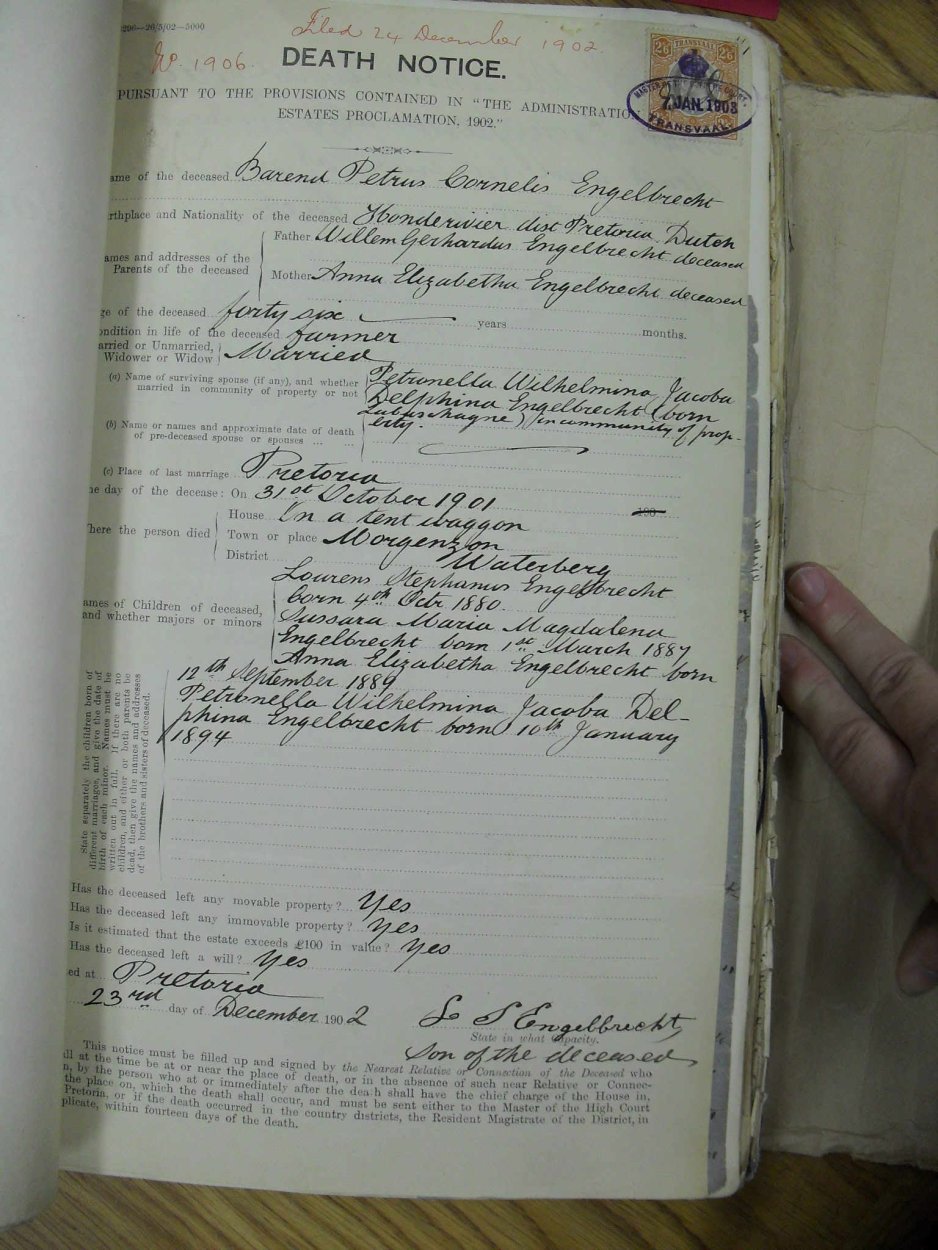 296—26/5/02—5000
Filed 24 December 1902.
No. 1906.
DEATH NOTICE.
PURSUANT TO THE PROVISIONS CONTAINED IN "THE ADMINISTRATIO
ESTATES PROCLAMATION, 1902."
TRANSVAAL
2/6 2/6
7 JAN 1903
TRANSVAAL
ame of the deceased Barend Petrus Cornelis Engelbrecht
rthplace and Nationality of the deceased Honderivier dist Pretoria. Dutch
ames and addresses of the Parents of the deceased
Father Willem Gerhardus Engelbrecht deceased
Mother Anna Elizabetha Engelbrecht deceased
ge of the deceased forty six years months.
ondition in life of the deceased farmer
arried or Unmarried, Widower or Widow Married
(a) Name of surviving spouse (if any), and whether married in community of property or not
Petronella Wilhelmina Jacoba
Delphina Engelbrecht (born
Labuschagne) in community of prop-
erty.
(b) Name or names and approximate date of death of pre-deceased spouse or spouses ... ...
(c) Place of last marriage Pretoria
he day of the decease: On 31st October 1901 190
here the person died
House In a tent waggon
Town or place Morgenzon
District Waterberg
ames of Children of deceased, and whether majors or minors
Lourens Stephanus Engelbrecht
born 4th Octr 1880.
Sussara Maria Magdalena
Engelbrecht born 1st March 1887
Anna Elizabetha Engelbrecht born
12th September 1889
Petronella Wilhelmina Jacoba Del-
phina Engelbrecht born 10th January
1894
State separately the children born of
different marriages, and give the date of
birth of each minor. Names must be
written out in full. If there are no
children, and either or both parents be
dead, then give the names and addresses
of the brothers and sisters of deceased.
Has the deceased left any movable property? Yes
Has the deceased left any immovable property? Yes
Is it estimated that the estate exceeds £100 in value? Yes
Has the deceased left a will? Yes
ed at Pretoria
23rd day of December 1902
L S Engelbrecht
State in what capacity.
Son of the deceased
This notice must be filled up and signed by the Nearest Relative or Connection of the Deceased who
ll at the time be at or near the place of death, or in the absence of such near Relative or Connec-
n, by the person who at or immediately after the death shall have the chief charge of the House in,
the place on, which the death shall occur, and must be sent either to the Master of the High Court
Pretoria, or if the death occurred in the country districts, the Resident Magistrate of the District, in
plicate, within fourteen days of the death.